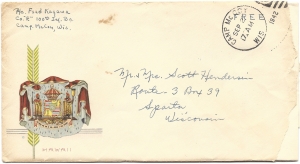 Pvt. Fred Kagawa
Co. "E" 100th Inf. Bn.
Camp McCoy, Wis.
CAMP MCCOY
SEP
17 AM
1942
WIS.
Mr. & Mrs. Scott Henderson
Route 3 Box 39
Sparta
Wisconsin
HAWAII